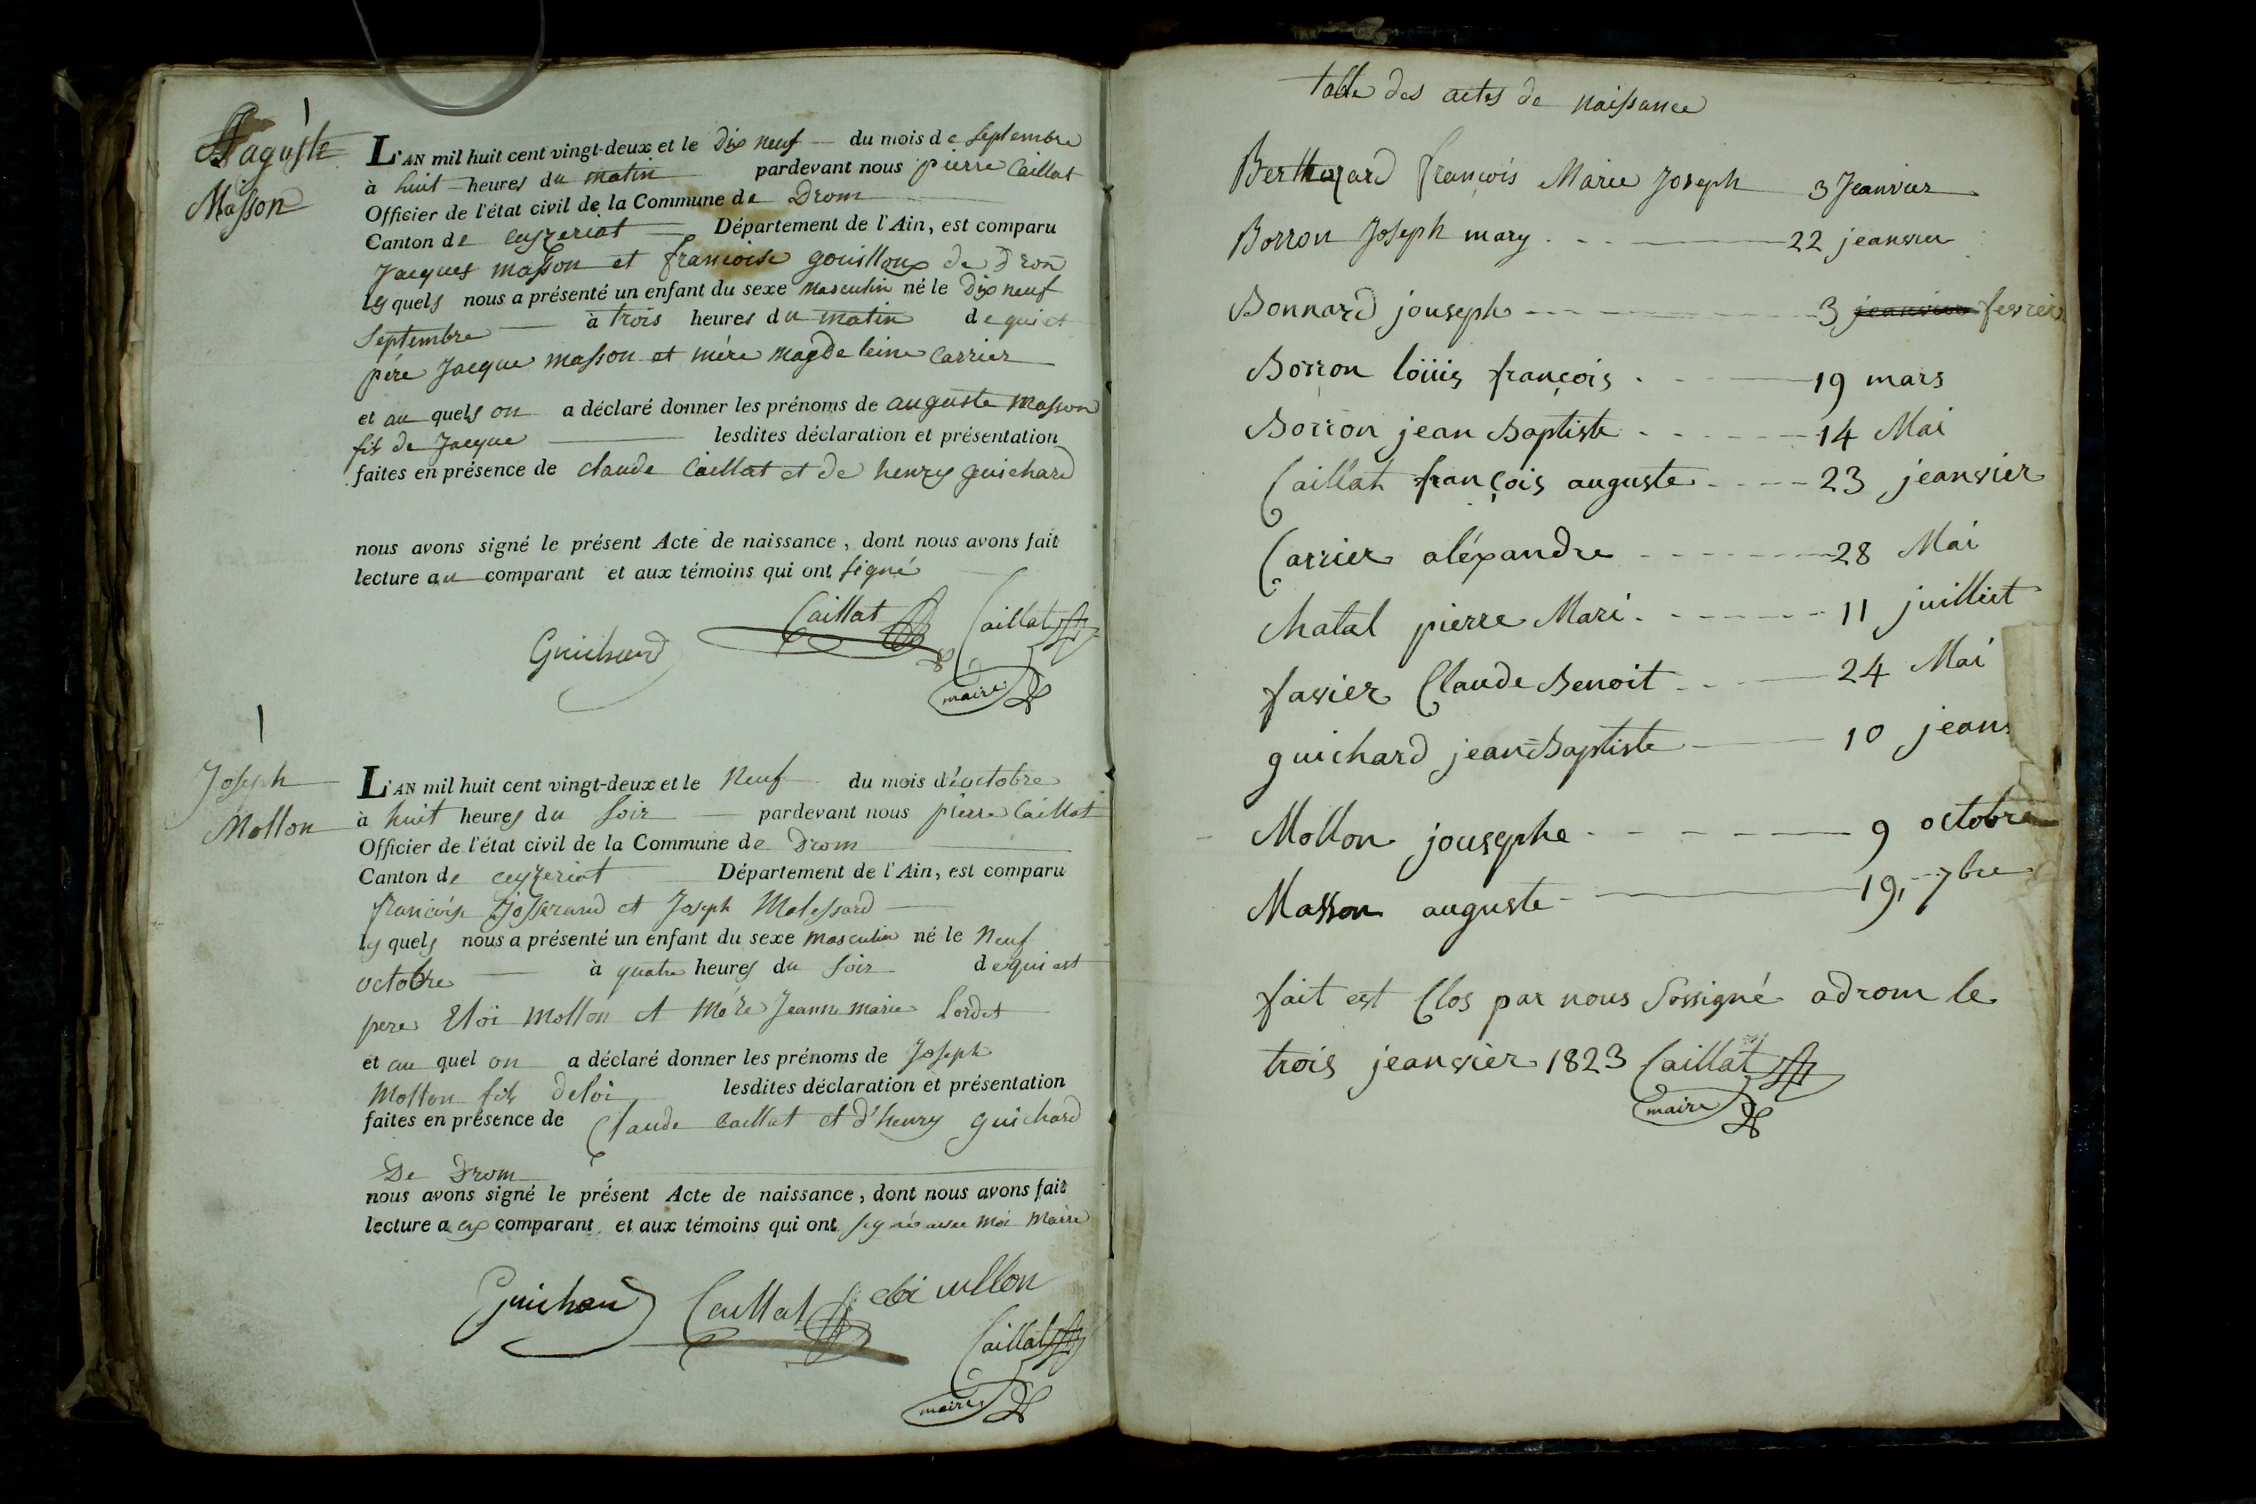 Aaguste
Masson
L'AN mil huit cent vingt-deux et le Dix neuf du mois de septembre
à huit heures du matin pardevant nous pierre Caillat
Officier de l'état civil de la Commune de Drom
Canton de ceyzeriat Département de l'Ain, est comparu
Jacques masson et francoise gouilloux de Dron
lesquels nous a présenté un enfant du sexe masculin né le Dix neuf
septembre à trois heures du matin de qui et
père Jacque masson et mére magdeleine Carrier
et au quels on a déclaré donner les prénoms de auguste masson
fils de Jacque lesdites déclaration et présentation
faites en présence de claude Caillat et de henry guichard
nous avons signé le présent Acte de naissance, dont nous avons fait
lecture au comparant et aux témoins qui ont signé
Guichard Caillat Caillat
maire
Joseph
Mollon
L'AN mil huit cent vingt-deux et le Neuf du mois d'octobre
à huit heures du soir pardevant nous pierre Caillat
Officier de l'état civil de la Commune de Drom
Canton de ceyzeriat Département de l'Ain, est comparu
francoise Josserand et Joseph Molessard
lesquels nous a présenté un enfant du sexe masculin né le Neuf
octobre à quatre heures du soir de qui est
pere Eloi mollon et Mére Jeanne marie Cordet
et au quel on a déclaré donner les prénoms de Joseph
Mollon fils deloi lesdites déclaration et présentation
faites en présence de Claude Caillat et d'henry guichard
De Drom
nous avons signé le présent Acte de naissance, dont nous avons fait
lecture a ex comparant et aux témoins qui ont signés avec moi Maire
Guichard Caillat eloi mollon
Caillat
maire
table des actes de naissance
Berthozard françois Marie Joseph 3 Jeanvier
Borron Joseph mary 22 jeanvier
Bonnard jouseph 3 jeanvier fevreis
Borron loüis françois 19 mars
Borron jean Baptiste 14 Mai
Caillat françois auguste 23 jeanvier
Carrier aléxandre 28 Mai
Chatal pierre Mari 11 juilliet
favier Claude Benoit 24 Mai
guichard jean=Baptiste 10 jean
Mollon jousephe 9 octobre
Masson auguste 19, 7bre
fait est Clos par nous Sossigné adrom le
trois jeanvier 1823 Caillat
maire